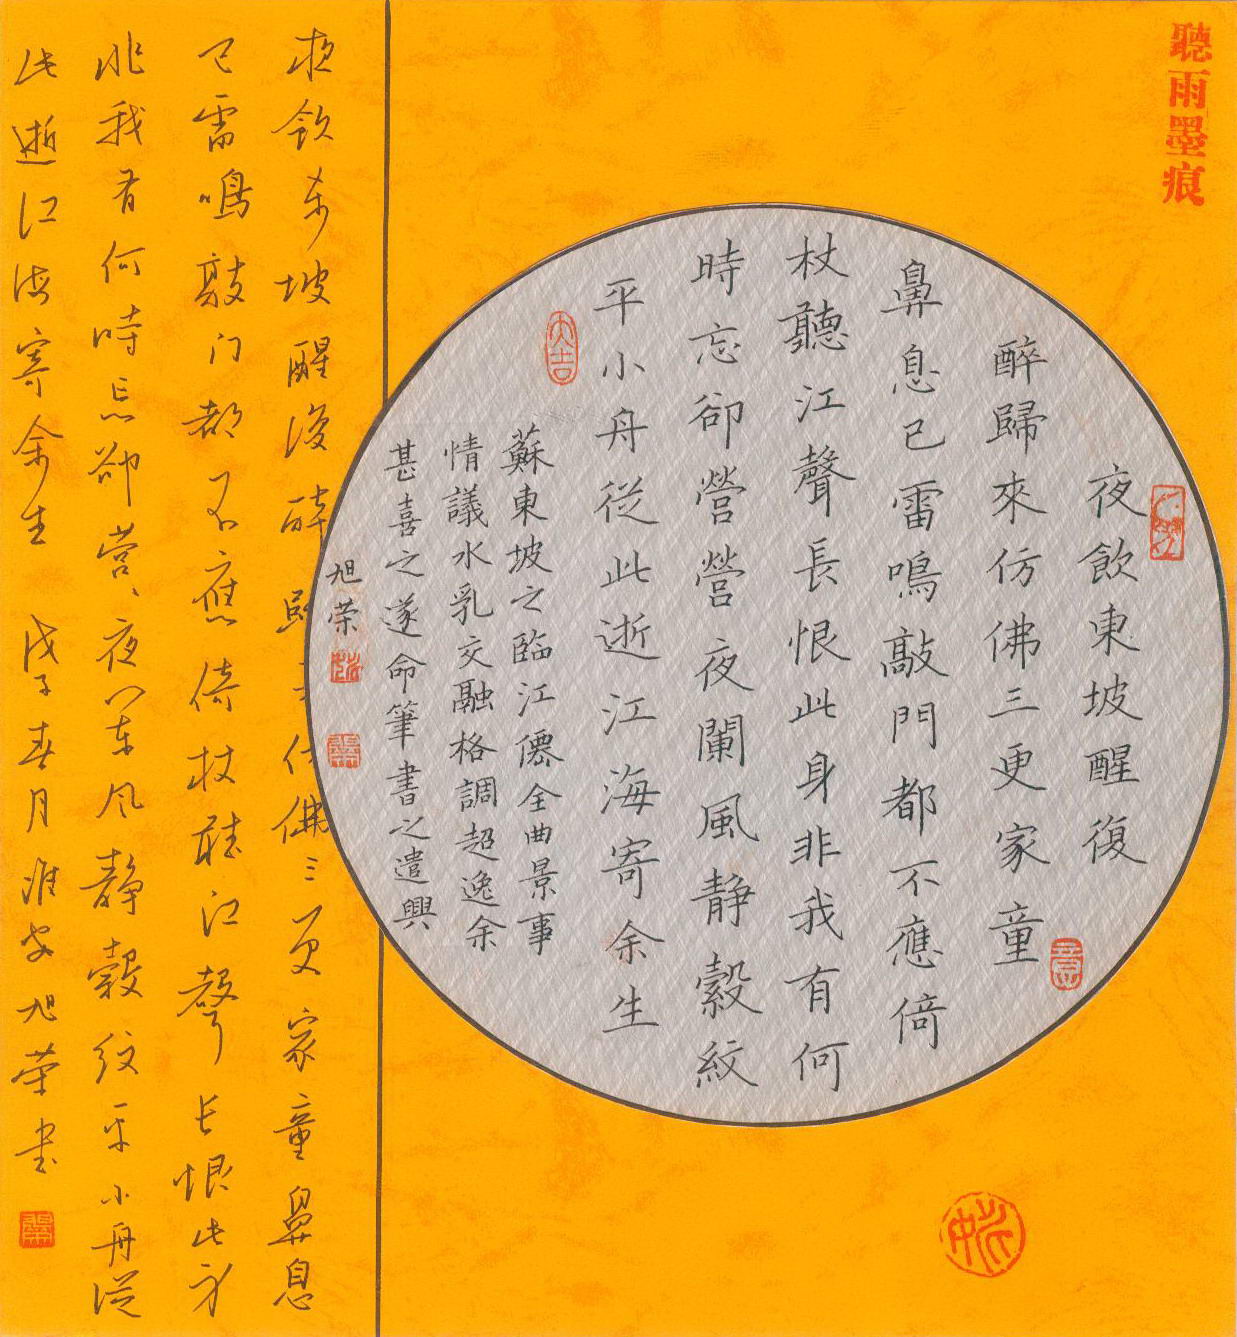 聽雨墨痕
夜飲東坡醒復
醉歸來仿佛三更家童
鼻息已雷鳴敲門都不應倚
杖聽江聲長恨此身非我有何
時忘卻營營夜闌風静縠紋
平小舟從此逝江海寄余生
大吉
蘇東坡之臨江僊全曲景事
情議水乳交融格調超逸余
甚喜之遂命筆書之遣興
旭荣
夜飲东坡醒復醉歸来仿佛三更家童鼻息
已雷鳴敲门都不應倚杖聴江聲长恨此身
非我有何時忘卻营、夜闌风静縠纹平小舟從
此逝江海寄余生 戊子春月淮安旭荣书